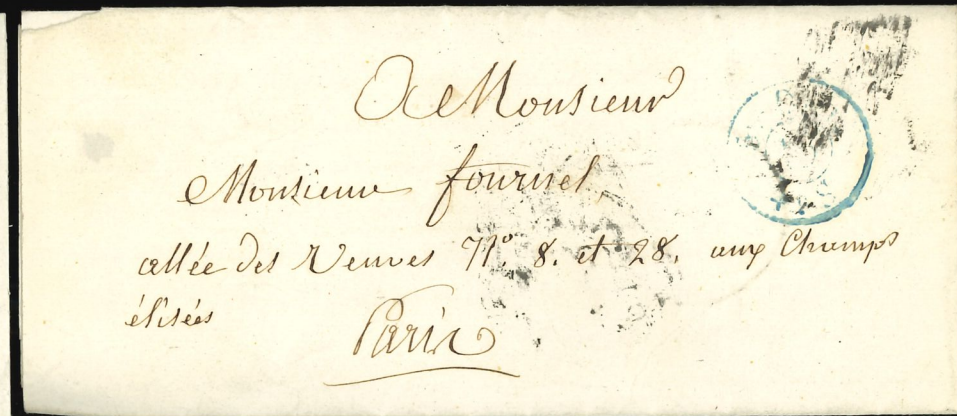 A Monsieur
Monsieur fournel
allée des Veuves N° 8. et 28. aux Champs
élisées
Paris